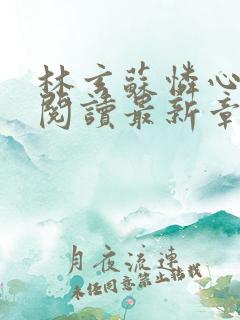 林玄蘇憐心
閱讀最新章
月夜流連
未經同意禁止轉載